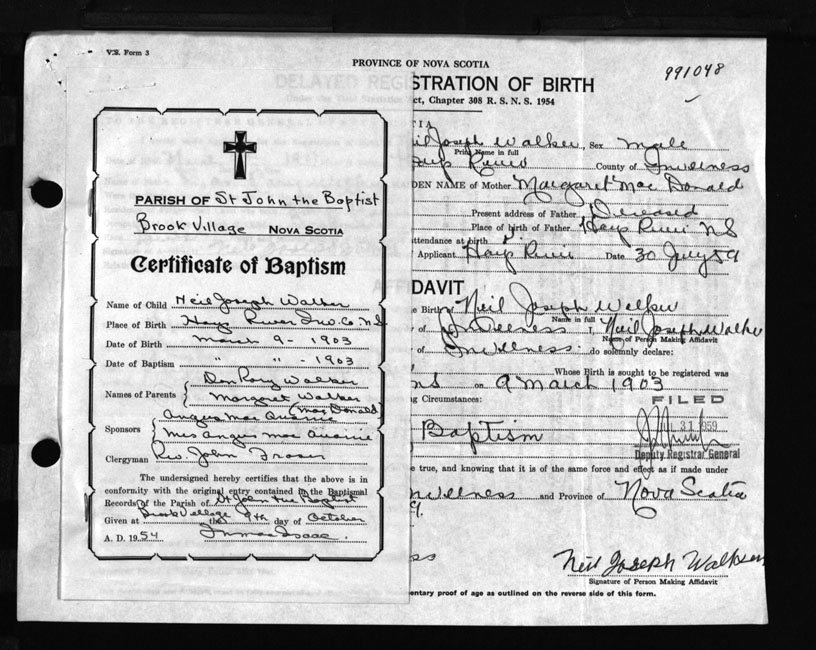 V.S. Form 3
PROVINCE OF NOVA SCOTIA
991048
DELAYED REGISTRATION OF BIRTH
ct, Chapter 308 R. S. N. S. 1954
Neil Joseph Walker, Sex Male
Print Name in full
County of Inverness
DEN NAME of Mother Margaret Mac Donald
Present address of Father Deceased
Place of birth of Father Hays River NS
ttendance at birth
Applicant Hays River Date 30 July 59
DAVIT
e Birth of Neil Joseph Walker
Name in full
of Inverness I, Neil Joseph Walker
Name of Person Making Affidavit
of Inverness do solemnly declare:
Whose Birth is sought to be registered was
NS on 9 March 1903
ng Circumstances:
FILED
JUL 31 1959
Baptism
Deputy Registrar General
e true, and knowing that it is of the same force and effect as if made under
Inverness and Province of Nova Scotia
Neil Joseph Walker
Signature of Person Making Affidavit
entary proof of age as outlined on the reverse side of this form.
PARISH OF St John the Baptist
Brook Village NOVA SCOTIA
Certificate of Baptism
Name of Child Neil Joseph Walker
Place of Birth Hays River Inv. Co. N.S
Date of Birth March 9 - 1903
Date of Baptism " " - 1903
Don Rory Walker
Names of Parents
Margaret Walker
(Mac Donald)
Angus Mac Quarrie
Sponsors
Mrs Angus Mac Quarrie
Clergyman Rev. John Fraser
The undersigned hereby certifies that the above is in
conformity with the original entry contained in the Baptismal
Records of the Parish of St John the Baptist
Brook Village
Given at the 9th day of October
A. D. 1954